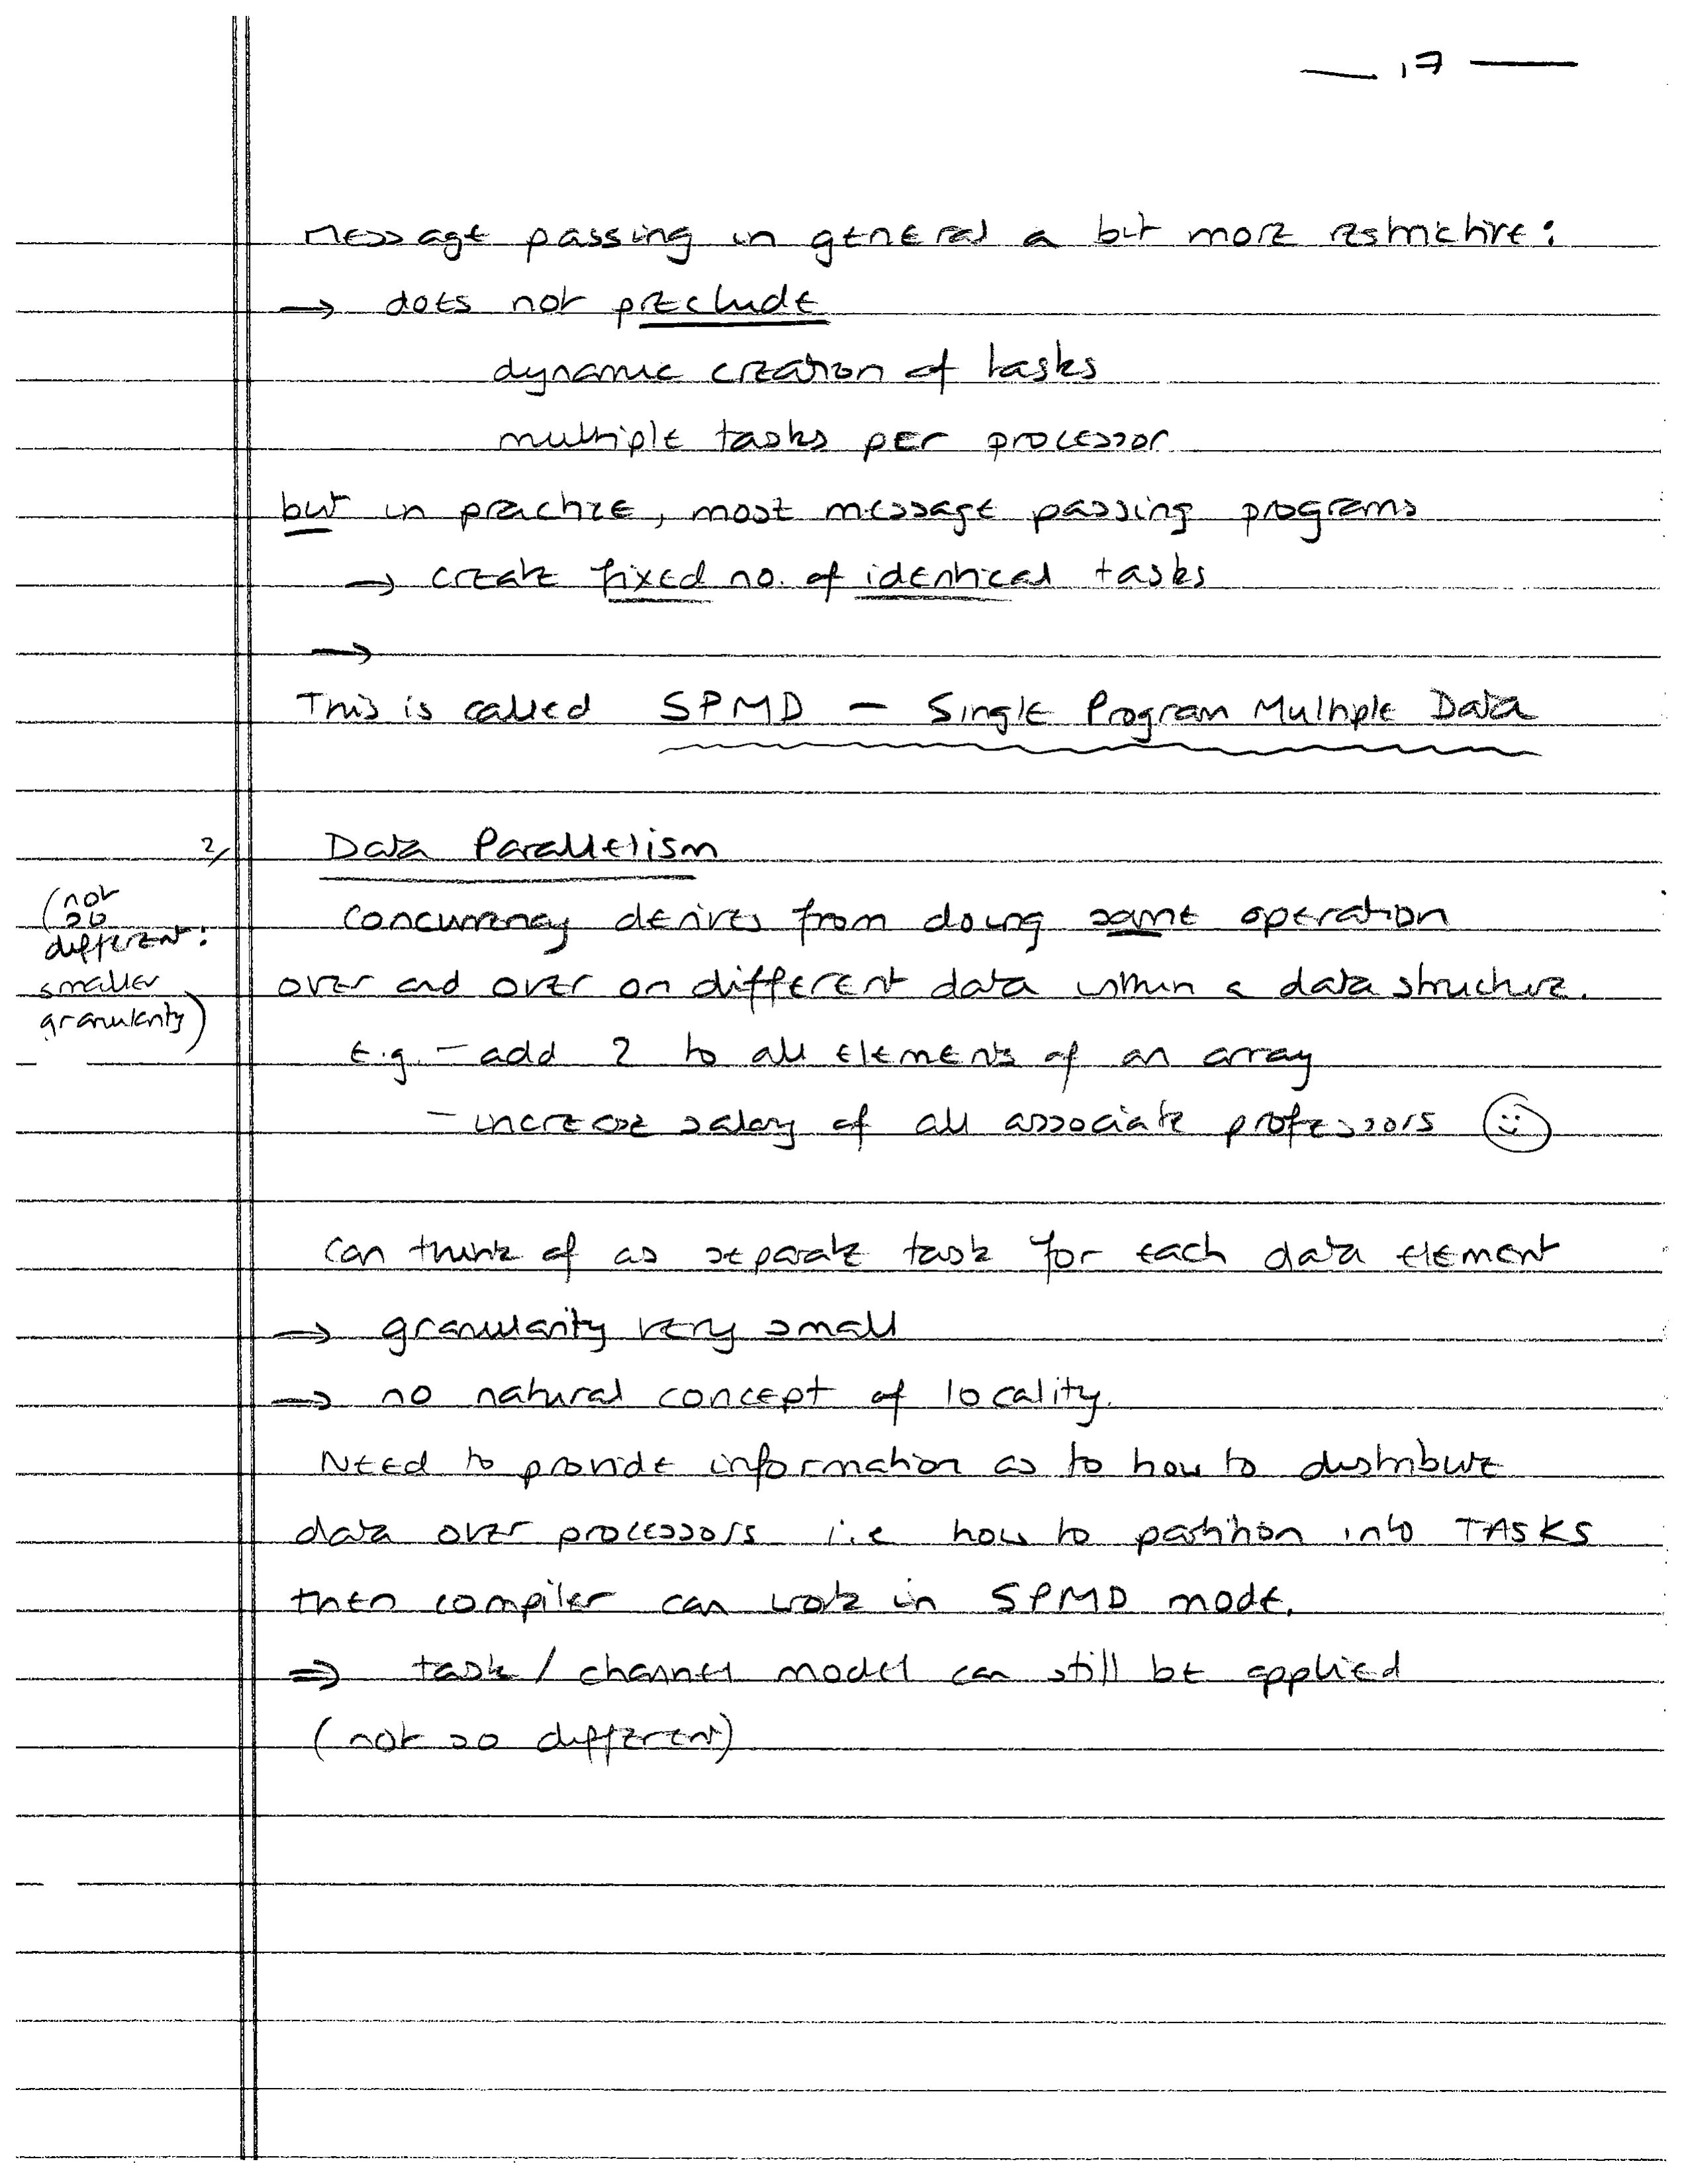 — 17 —
Message passing in general a bit more restrictive:
→ does not preclude
dynamic creation of tasks
multiple tasks per processor
but in practice, most message passing programs
→ create fixed no. of identical tasks
→
This is called SPMD – Single Program Multiple Data
2/ Data Parallelism
(not
so
different:
smaller
granularity)
Concurrency derives from doing same operation
over and over on different data within a data structure.
E.g. – add 2 to all elements of an array
– increase salary of all associate professors ☺
Can think of as separate task for each data element
→ granularity very small
→ no natural concept of locality.
Need to provide information as to how to distribute
data over processors i.e how to partition into TASKS
then compiler can work in SPMD mode.
⇒ task / channel model can still be applied
(not so different)